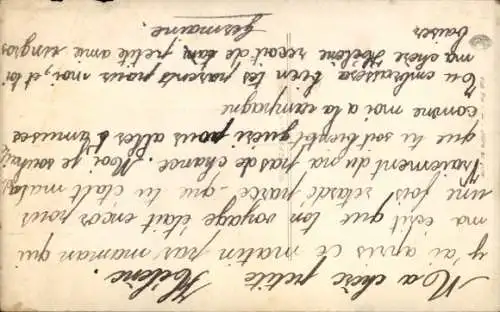 Ma chère petite
Hélène.
J'ai apris ce matin par maman qui
ma edit que ton voyage était encor pous
une fois retardé parce-que tu était mala
Vraiement du na pas de chance. Moi je souhaite
que tu soit bientôt guéri pous alles t'amuses
comme moi a la campagne
Tu embrasera bien tes parents pous moi, et toi
ma chère Hélène recoit de tam petite amie un gros
baiser
Germaine.